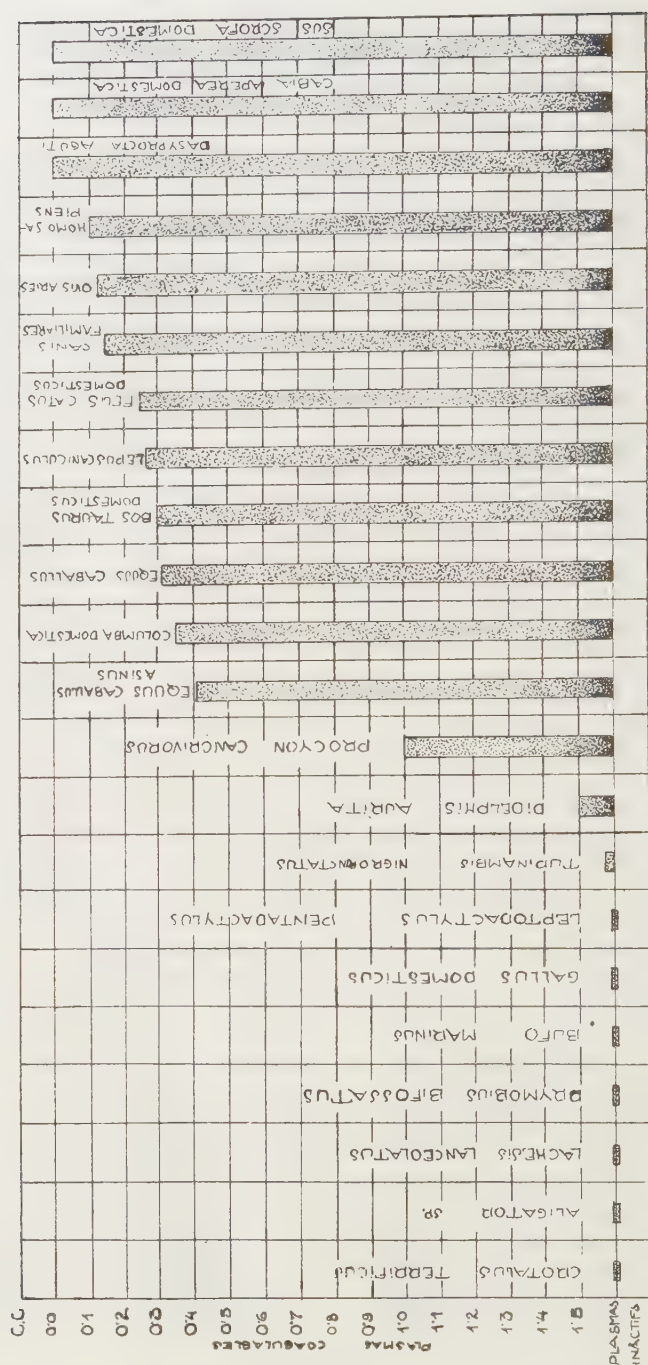 SUS SCROFA DOMESTICA
CABIA APEREA DOMESTICA
DASYPROCTA AGUTI
HOMO SA-
PIENS
OVIS ARIES
CANIS
FAMILIARES
FELIS CATUS
DOMESTICUS
LEPUS CANICULUS
BOS TAURUS
DOMESTICUS
EQUUS CABALLUS
COLUMBA DOMESTICA
EQUUS CABALLUS
ASINUS
PROCYON CANCRIVORUS
DIDELPHIS AURITA
TUPINAMBIS NIGROPNCTATUS
LEPTODACTYLUS PENTADACTYLUS
GALLUS DOMESTICUS
BUFO MARINUS
DRYMOBIUS BIFOSSATUS
LACHESIS LANCEOLATUS
ALIGATOR SP.
CROTALUS TERRIFICUS
C.C.
0'0
0'1
0'2
0'3
0'4
0'5
0'6
0'7
0'8
0'9
1'0
1'1
1'2
1'3
1'4
1'5
PLASMAS
COAGULABLES
PLASMAS
INACTIFS